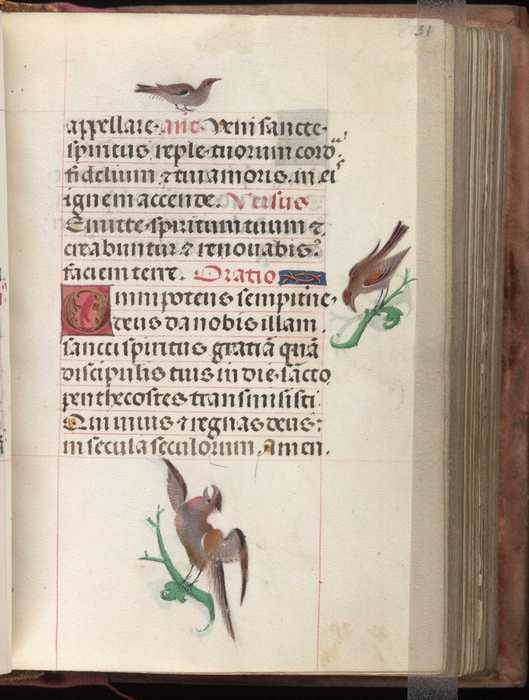 31
appellare. añt. Veni sancte.
spiritus reple. tuorum cord̛
fidelium. ⁊ tui amoris. in ei
ignem accende. Versus
Emitte. spiritum tuum ⁊
creabuntur. ⁊ renovabis.
faciem terre. Oratio
Omnipotens sempitñe.
deus da nobis illam.
sancti spiritus gratiā quā
discipulis tuis in die. sācto
penthecostes transmisisti.
Qui vivis ⁊ regnas deus:
in secula seculorum. amen.